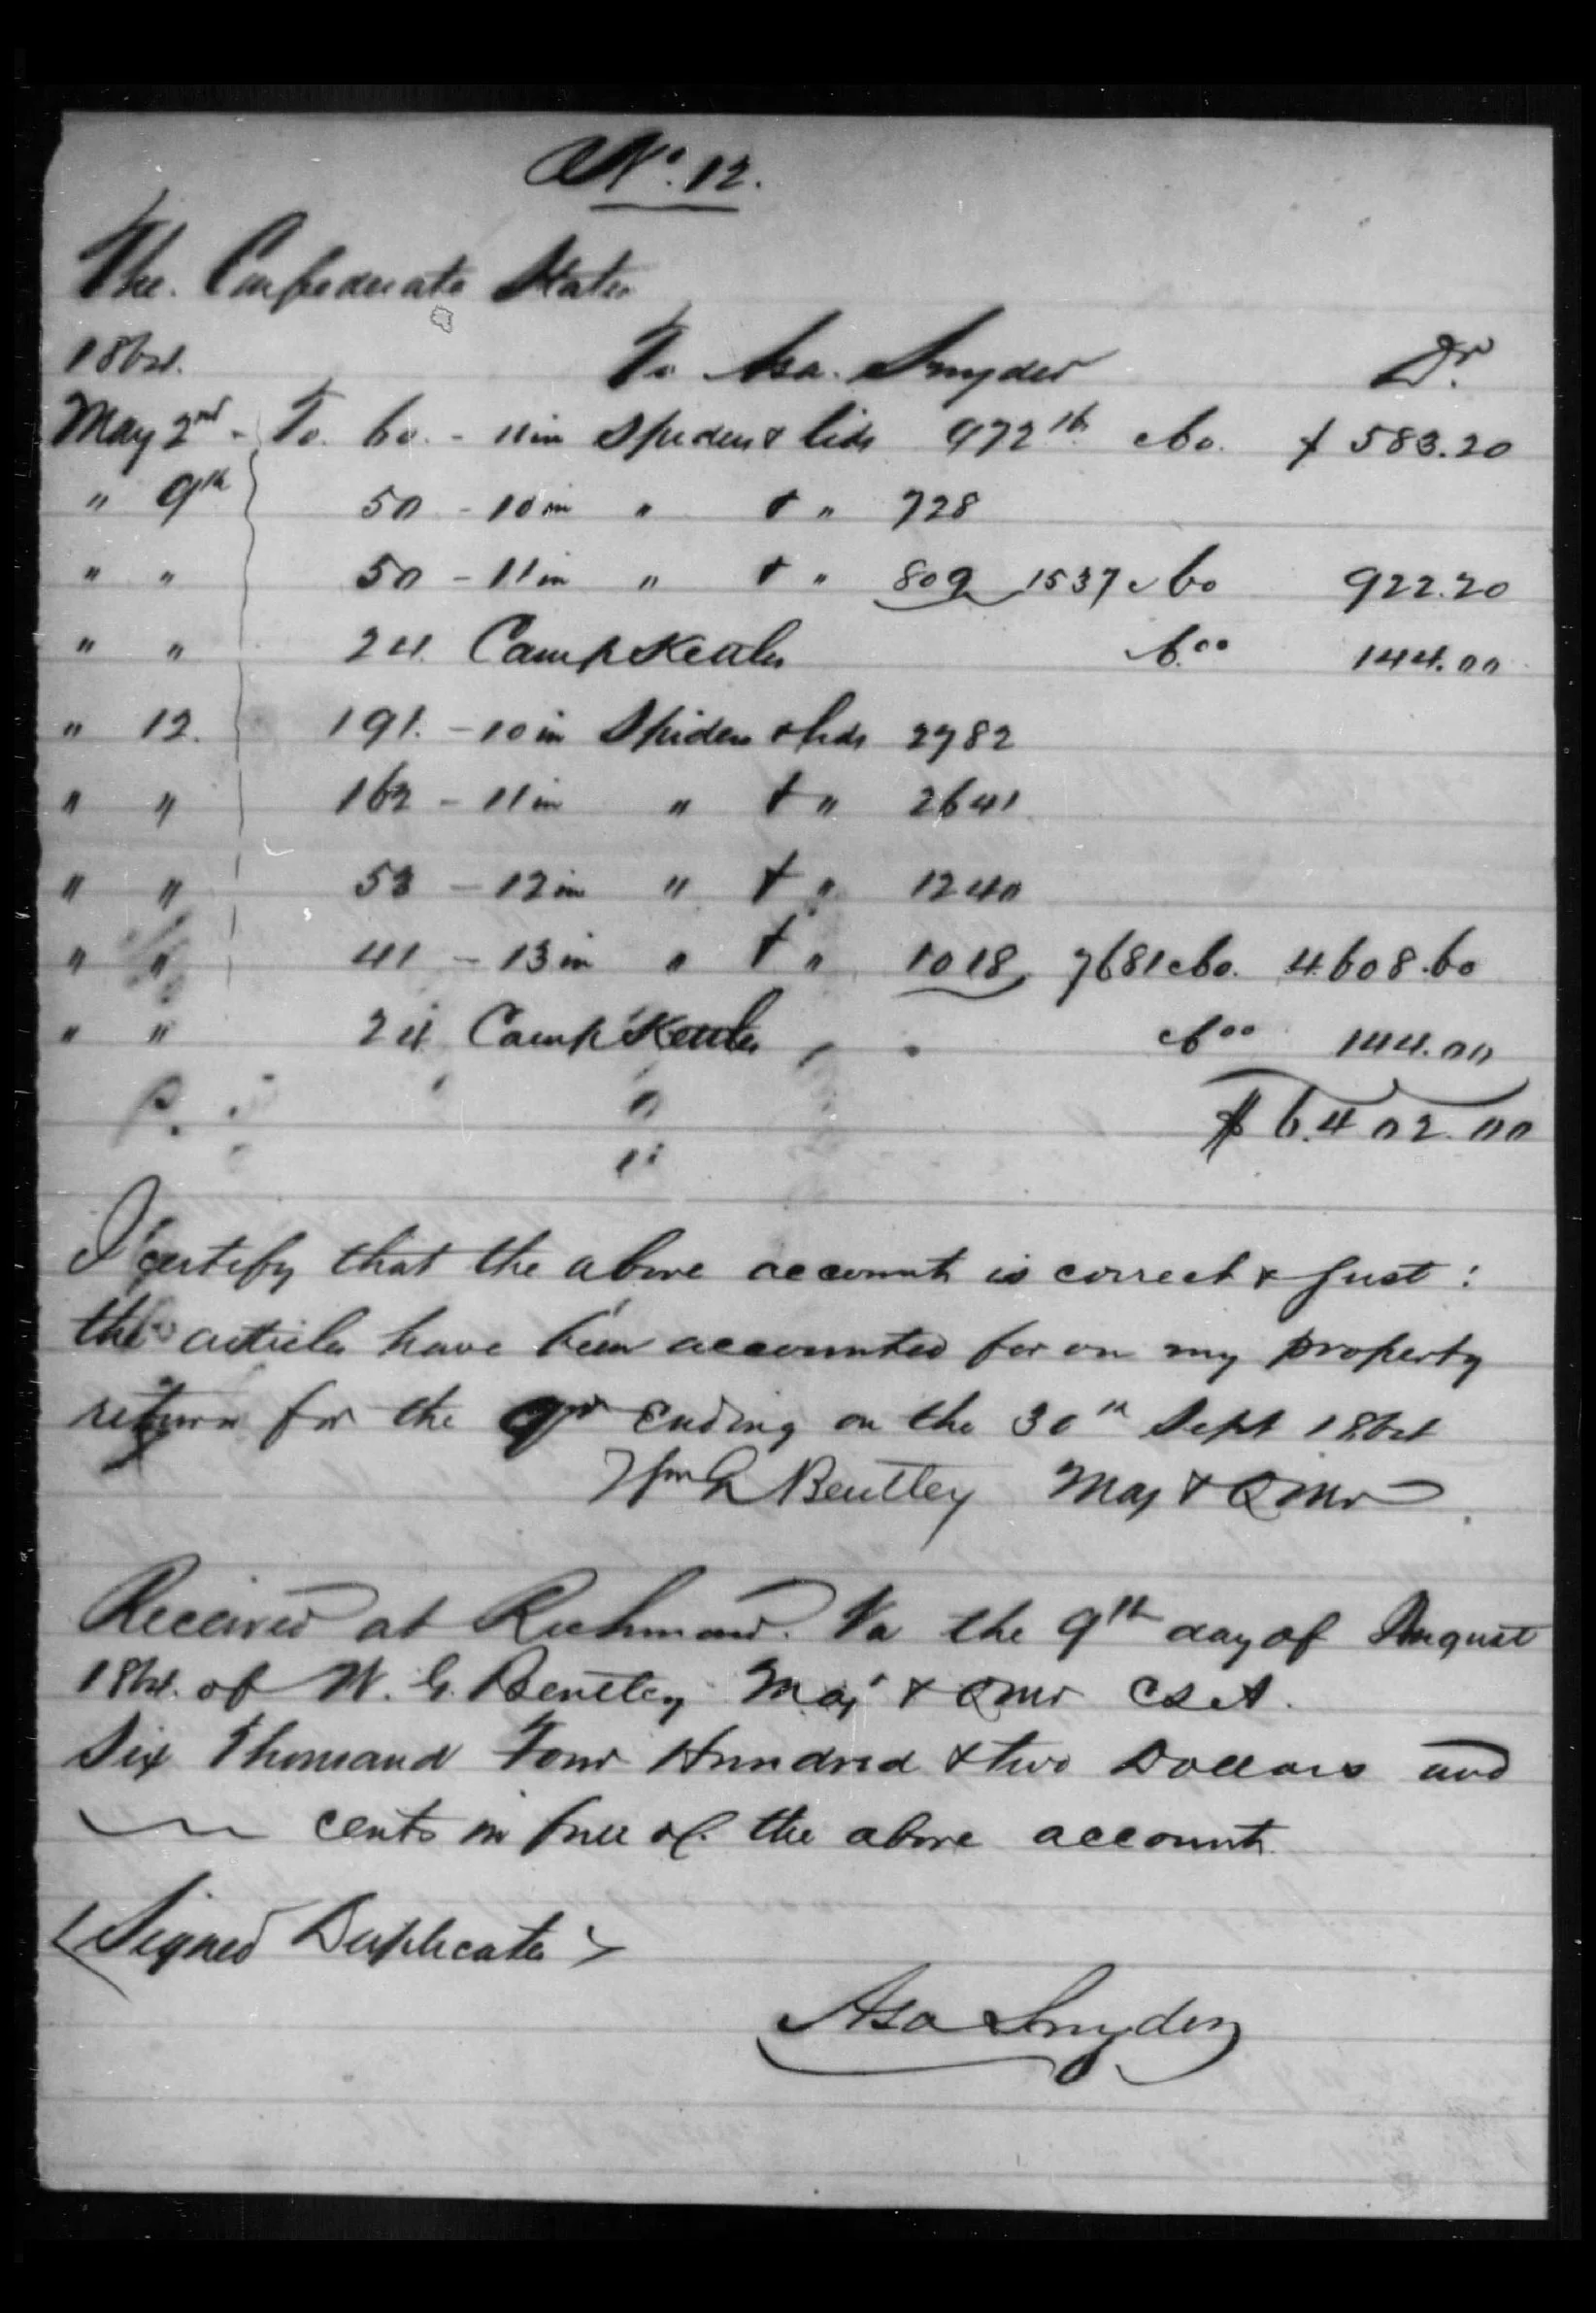 No. 12.
The Confederate States
1864. To Asa. Snyder Dr.
May 2nd - To. 60. - 11 in Spiders & lids 972 lb c60. $ 583.20
" 9th 50 - 10 in " & " 728
" " 50 - 11 in " & " 809 1537 c60 922.20
" " 24 Camp Kettles 6.00 144.00
" 12. 191. - 10 in Spiders & lids 2782
" " 162 - 11 in " & " 2641
" " 58 - 12 in " & " 1240
" " 41 - 13 in " & " 1018 7681 c60. 4608.60
" " 24 Camp Kettles 6.00 144.00
$ 6.402.00
I certify that the above account is correct & just :
the articles have been accounted for on my property
return for the qr ending on the 30th Sept 1864
Wm G Bentley Maj & QMr
Received at Richmond. Va the 9th day of August
1864. of W. G. Bentley Maj & QMr CSA.
Six Thousand Four Hundred & two Dollars and
cents in full of. the above account.
<Signed Duplicates>
Asa Snyder